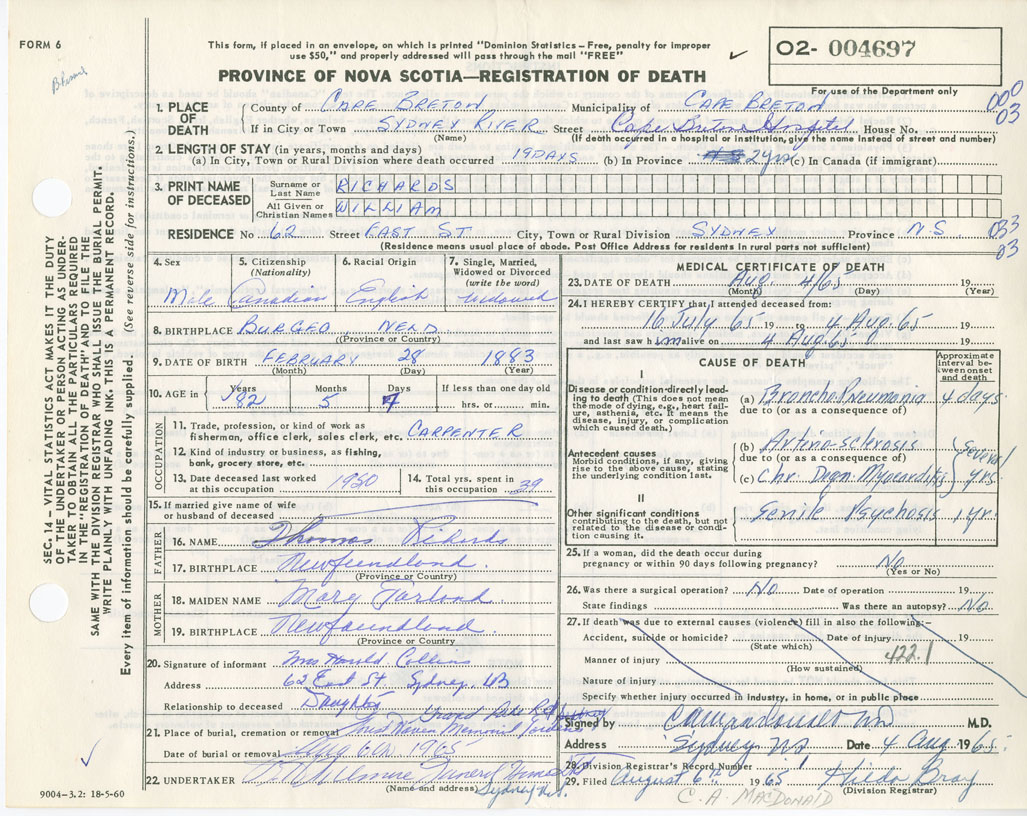 FORM 6
This form, if placed in an envelope, on which is printed "Dominion Statistics—Free, penalty for improper
use $50," and properly addressed will pass through the mail "FREE"
✓
O2- 004697
For use of the Department only
PROVINCE OF NOVA SCOTIA—REGISTRATION OF DEATH
000
03
1. PLACE OF DEATH
County of CAPE BRETON Municipality of CAPE BRETON
If in City or Town SYDNEY RIVER Street Cape Breton Hospital House No.
(Name) (If death occurred in a hospital or institution, give the name instead of street and number)
2. LENGTH OF STAY (in years, months and days)
(a) In City, Town or Rural Division where death occurred 19 DAYS (b) In Province 2 yrs (c) In Canada (if immigrant)
3. PRINT NAME OF DECEASED
Surname or Last Name RICHARDS
All Given or Christian Names WILLIAM
RESIDENCE No 62 Street EAST ST City, Town or Rural Division SYDNEY Province N S
033
03
(Residence means usual place of abode. Post Office Address for residents in rural parts not sufficient)
4. Sex
Male
5. Citizenship
(Nationality)
Canadian
6. Racial Origin
English
7. Single, Married,
Widowed or Divorced
(write the word)
Widowed
8. BIRTHPLACE BURGEO, NFLD
(Province or Country)
9. DATE OF BIRTH FEBRUARY 28 1883
(Month) (Day) (Year)
10. AGE in
Years Months Days If less than one day old
82 5 7 hrs. or min.
OCCUPATION
11. Trade, profession, or kind of work as
fisherman, office clerk, sales clerk, etc. CARPENTER
12. Kind of industry or business, as fishing,
bank, grocery store, etc.
13. Date deceased last worked
at this occupation 1950
14. Total yrs. spent in
this occupation 39
15. If married give name of wife
or husband of deceased
FATHER
16. NAME Thomas Richards
17. BIRTHPLACE Newfoundland
(Province or Country)
MOTHER
18. MAIDEN NAME Mary
19. BIRTHPLACE Newfoundland
(Province or Country)
20. Signature of informant Mrs Harold Collins
Address 62 East St. Sydney, NS
Relationship to deceased Daughter
21. Place of burial, cremation or removal Memorial Gardens
Date of burial or removal Aug 6th 1965
22. UNDERTAKER Funeral Home
(Name and address) Sydney N.S.
MEDICAL CERTIFICATE OF DEATH
23. DATE OF DEATH Aug. 4/65 19
(Month) (Day) (Year)
24. I HEREBY CERTIFY that I attended deceased from:
16 July 65 19 to 4 Aug. 65 19
and last saw him alive on 4 Aug 65 19
CAUSE OF DEATH
Approximate
interval be-
tween onset
and death
I
Disease or condition directly lead-
ing to death (This does not mean
the mode of dying, e.g., heart fail-
ure, asthenia, etc. It means the
disease, injury, or complication
which caused death.)
(a) Broncho Pneumonia 4 days
due to (or as a consequence of)
Antecedent causes
Morbid conditions, if any, giving
rise to the above cause, stating
the underlying condition last.
(b) Arterio-sclerosis
due to (or as a consequence of)
(c) Chr. Degn. Myocarditis
Several
yrs.
II
Other significant conditions
contributing to the death, but not
related to the disease or condi-
tion causing it.
Senile Psychosis 1 yr.
25. If a woman, did the death occur during
pregnancy or within 90 days following pregnancy? No
(Yes or No)
26. Was there a surgical operation? No Date of operation 19
State findings Was there an autopsy? No
27. If death was due to external causes (violence) fill in also the following:—
Accident, suicide or homicide? Date of injury 19
(State which)
422.1
Manner of injury
(How sustained)
Nature of injury
Specify whether injury occurred in industry, in home, or in public place
Signed by M.D.
Address Sydney NS Date 4 Aug 1965
28. Division Registrar's Record Number
29. Filed August 6th 1965 Hilda Gray
(Division Registrar)
C. A. MACDONALD
SEC. 14—VITAL STATISTICS ACT MAKES IT THE DUTY
OF THE UNDERTAKER OR PERSON ACTING AS UNDER-
TAKER TO OBTAIN ALL THE PARTICULARS REQUIRED
IN THE "REGISTRATION OF DEATH" AND TO FILE THE
SAME WITH THE DIVISION REGISTRAR WHO SHALL ISSUE THE BURIAL PERMIT.
WRITE PLAINLY WITH UNFADING INK. THIS IS A PERMANENT RECORD.
Every item of information should be carefully supplied. (See reverse side for instructions.)
✓
9004-3.2: 18-5-60